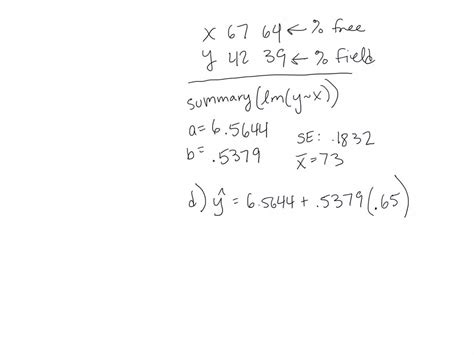 x 67 64 ← % free
y 42 39 ← % field
summary(lm(y~x))
a= 6.5644
b= .5379
SE: .1832
x̄ = 73
d) ŷ = 6.5644 + .5379(.65)